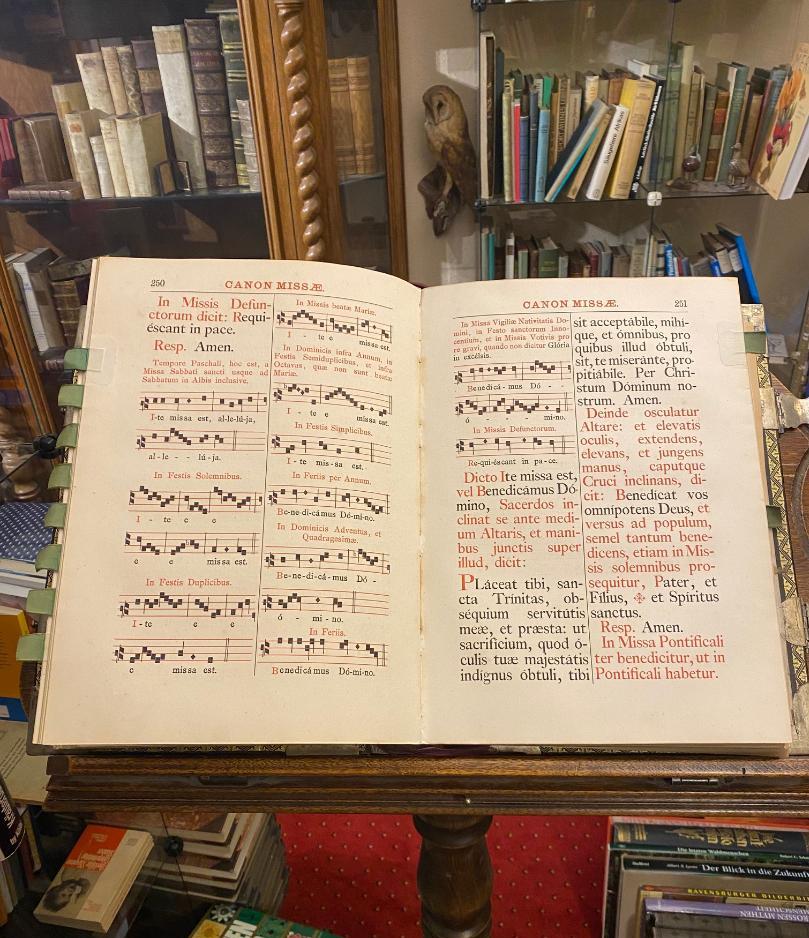 250
CANON MISSÆ.
In Missis Defun-
ctorum dicit: Requi-
éscant in pace.
Resp. Amen.
Tempore Paschali, hoc est, a
Missa Sabbati sancti usque ad
Sabbatum in Albis inclusive.
I-te missa est, al-le-lú-ja,
al-le - - lú-ja.
In Festis Solemnibus.
I - te e e
e e missa est.
In Festis Duplicibus.
I-te e e
e missa est.
In Missis beatæ Mariæ.
I - te e missa est.
In Dominicis infra Annum, in
Festis Semiduplicibus, et infra
Octavas, quæ non sunt beatæ
Mariæ.
I - te e missa est.
In Festis Simplicibus.
I - te mis-sa est.
In Feriis per Annum.
Be-ne-di-cá-mus Dó-mi-no.
In Dominicis Adventus, et
Quadragesimæ.
Be-ne-di-cá-mus Dó -
ó - mi-no.
In Feriis.
Benedicámus Dó-mi-no.
CANON MISSÆ.
251
In Missa Vigiliæ Nativitatis Do-
mini, in Festo sanctorum Inno-
centium, et in Missis Votivis pro
re gravi, quando non dicitur Glória
in excélsis.
Benedicá-mus Dó - -
ó - - - mi-no.
In Missis Defunctorum.
Re-qui-éscant in pa-ce.
Dicto Ite missa est,
vel Benedicámus Dó-
mino, Sacerdos in-
clinat se ante medi-
um Altaris, et mani-
bus junctis super
illud, dicit:
PLáceat tibi, san-
cta Trínitas, ob-
séquium servitútis
meæ, et præsta: ut
sacrificium, quod ó-
culis tuæ majestátis
indígnus óbtuli, tibi
sit acceptábile, mihí-
que, et ómnibus, pro
quibus illud óbtuli,
sit, te miseránte, pro-
pitiábile. Per Chri-
stum Dóminum no-
strum. Amen.
Deinde osculatur
Altare: et elevatis
oculis, extendens,
elevans, et jungens
manus, caputque
Cruci inclinans, di-
cit: Benedícat vos
omnípotens Deus, et
versus ad populum,
semel tantum bene-
dicens, etiam in Mis-
sis solemnibus pro-
sequitur, Pater, et
Fílius, ✠ et Spíritus
sanctus.
Resp. Amen.
In Missa Pontificali
ter benedicitur, ut in
Pontificali habetur.
Die letzten Waldmenschen
Der Blick in die Zukunft
RAVENSBURGER BILDERBI
ROSSEN MYTHEN
MENSCHHEIT